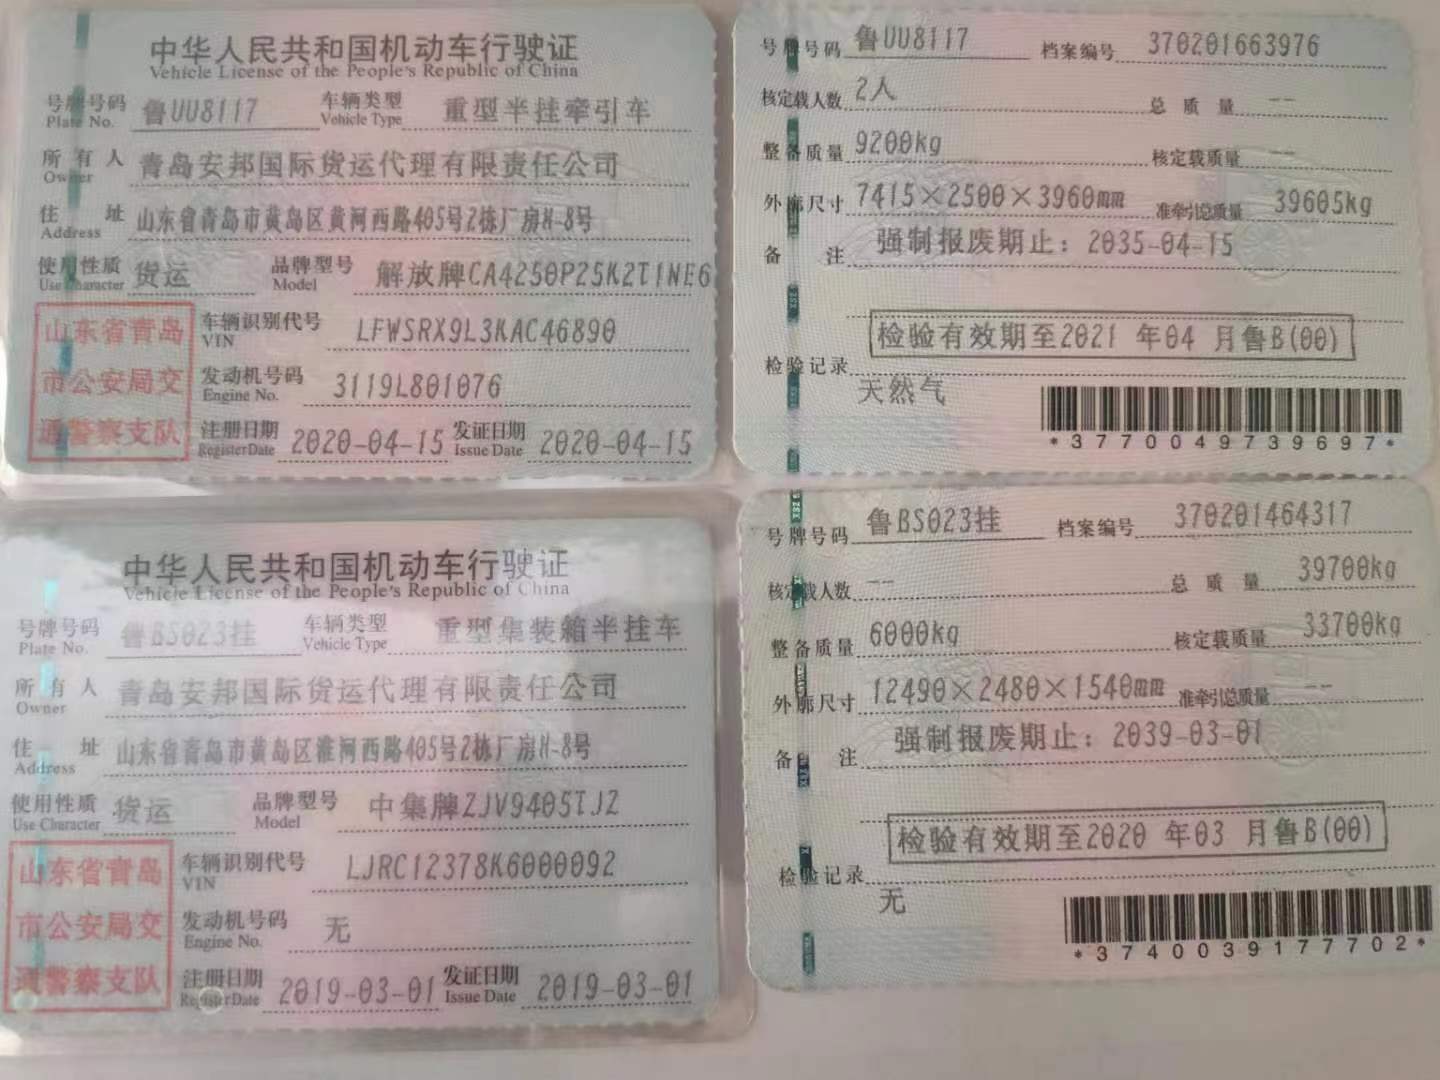 中华人民共和国机动车行驶证
Vehicle License of the People's Republic of China
号牌号码 鲁UU8117 车辆类型 重型半挂牵引车
Plate No. Vehicle Type
所有人 青岛安邦国际货运代理有限责任公司
Owner
住址 山东省青岛市黄岛区黄河西路405号2栋厂房N-8号
Address
使用性质 货运 品牌型号 解放牌CA4250P25K2T1NE6
Use Character Model
山东省青岛市公安局交通警察支队
车辆识别代号 LFWSRX9L3KAC46890
VIN
发动机号码 3119L801076
Engine No.
注册日期 2020-04-15 发证日期 2020-04-15
Register Date Issue Date
号牌号码 鲁UU8117 档案编号 370201663976
核定载人数 2人 总质量 --
整备质量 9200kg 核定载质量 --
外廓尺寸 7415×2500×3960mm 准牵引总质量 39605kg
备注 强制报废期止：2035-04-15
检验有效期至2021 年04 月鲁B(00)
检验记录
天然气
*3770049739697*
中华人民共和国机动车行驶证
Vehicle License of the People's Republic of China
号牌号码 鲁BS023挂 车辆类型 重型集装箱半挂车
Plate No. Vehicle Type
所有人 青岛安邦国际货运代理有限责任公司
Owner
住址 山东省青岛市黄岛区淮河西路405号2栋厂房N-8号
Address
使用性质 货运 品牌型号 中集牌ZJV9405TJZ
Use Character Model
山东省青岛市公安局交通警察支队
车辆识别代号 LJRC12378K6000092
VIN
发动机号码 无
Engine No.
注册日期 2019-03-01 发证日期 2019-03-01
Register Date Issue Date
号牌号码 鲁BS023挂 档案编号 370201464317
核定载人数 -- 总质量 39700kg
整备质量 6000kg 核定载质量 33700kg
外廓尺寸 12490×2480×1540mm 准牵引总质量 --
备注 强制报废期止：2039-03-01
检验有效期至2020 年03 月鲁B(00)
检验记录
无
*3740039177702*